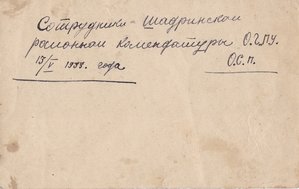 Сотрудники - Шадринской
районной комендатуры О.Г.П.У.
13/V 1933. года
О.С.П.